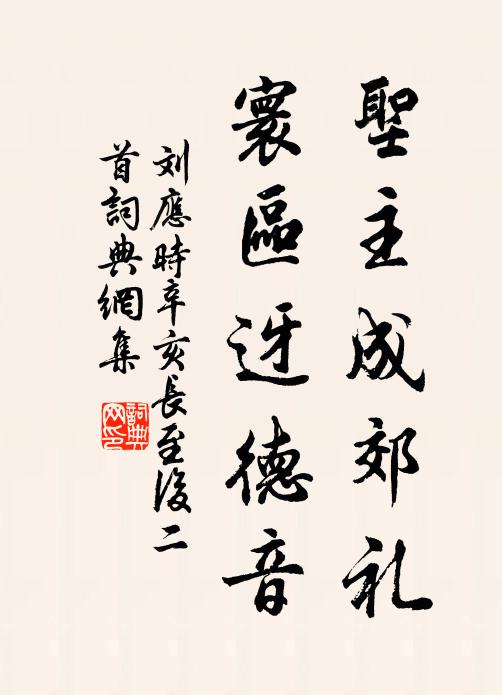 聖主成郊礼
寰區迓德音
刘應時辛亥長至後二
首詞典網集
詞典网印